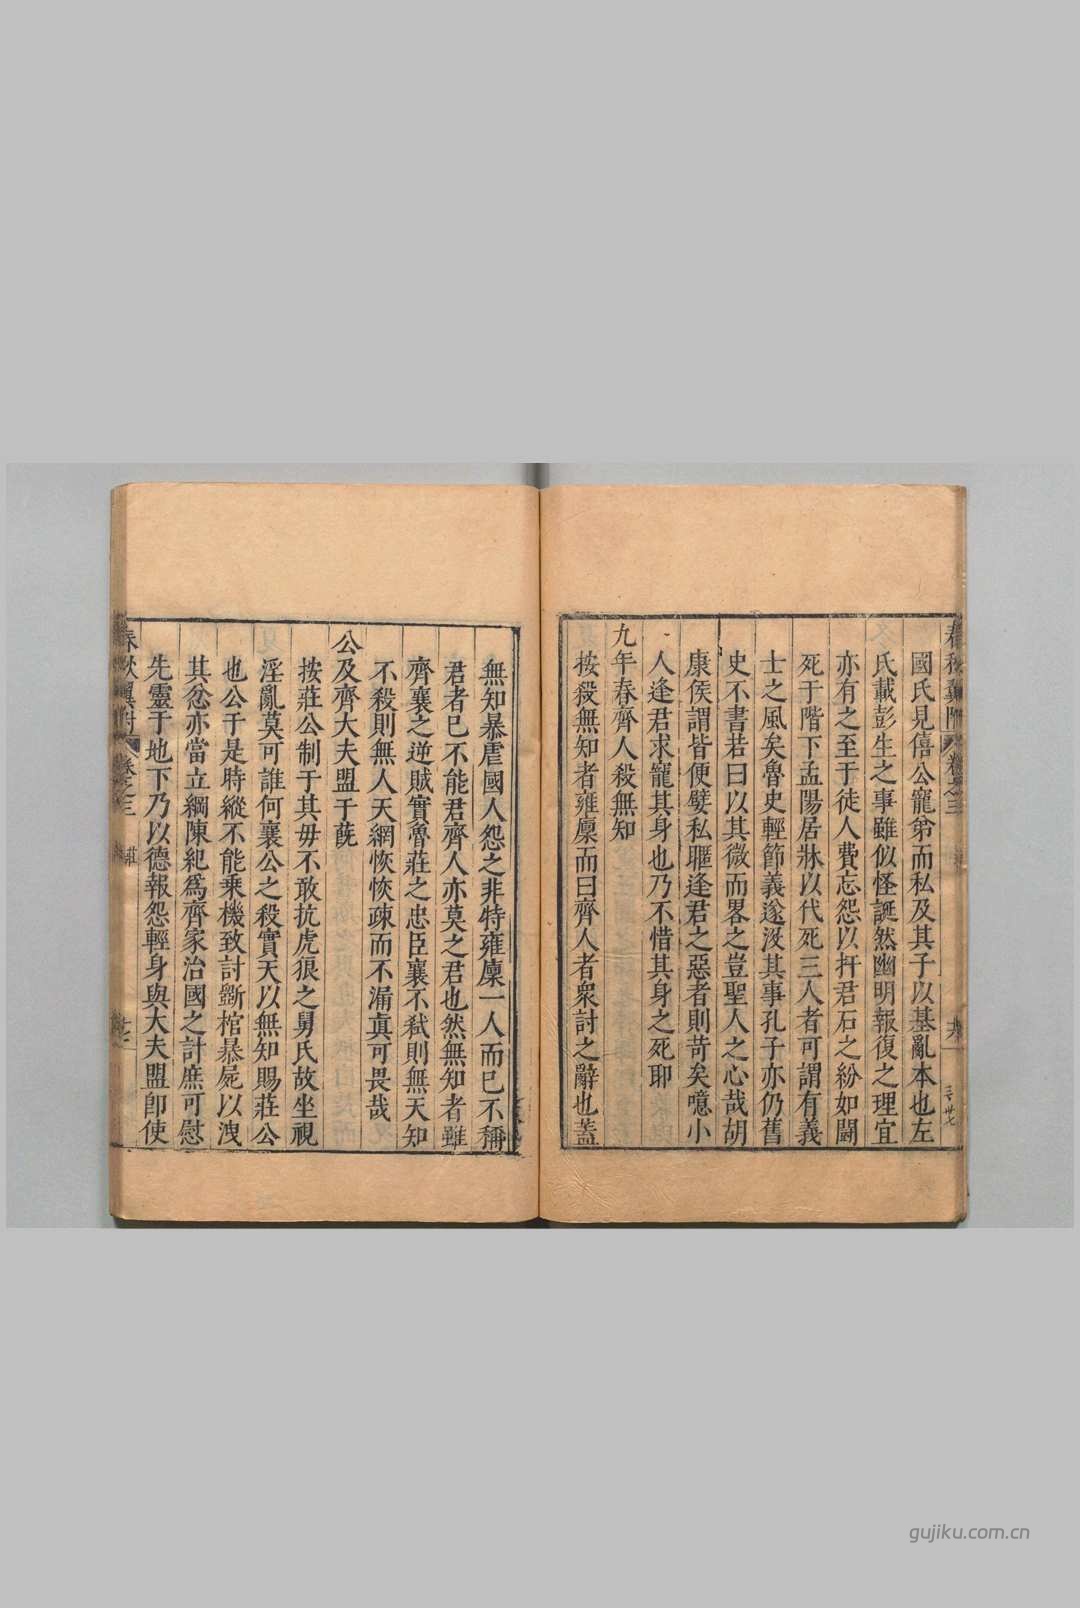 國氏見僖公寵弟而私及其子以基亂本也左
氏載彭生之事雖似怪誕然幽明報復之理宜
亦有之至于徒人費忘怨以扞君石之紛如鬬
死于階下孟陽居牀以代死三人者可謂有義
士之風矣魯史輕節義遂沒其事孔子亦仍舊
史不書若曰以其微而畧之豈聖人之心哉胡
康侯謂皆便嬖私暱逢君之惡者則苛矣噫小
人逢君求寵其身也乃不惜其身之死耶
九年春齊人殺無知
按殺無知者雍廩而曰齊人者衆討之辭也蓋
無知暴虐國人怨之非特雍廩一人而已不稱
君者已不能君齊人亦莫之君也然無知者雖
齊襄之逆賊實魯莊之忠臣襄不弑則無天知
不殺則無人天網恢恢疎而不漏真可畏哉
公及齊大夫盟于蔇
按莊公制于其毋不敢抗虎狼之舅氏故坐視
淫亂莫可誰何襄公之殺實天以無知賜莊公
也公于是時縱不能乗機致討斵棺暴屍以洩
其忿亦當立綱陳紀爲齊家治國之計庶可慰
先靈于地下乃以德報怨輕身與大夫盟卽使
春秋翼附
卷之三
莊
gujiku.com.cn